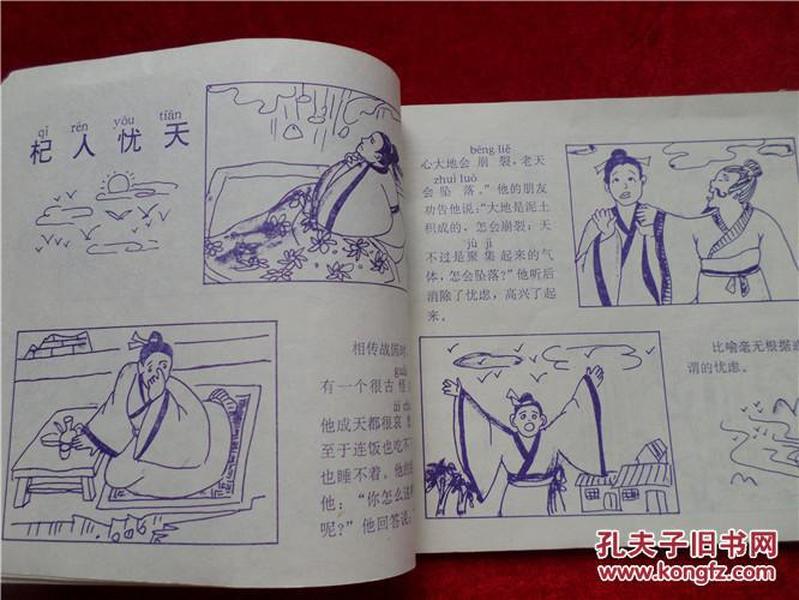 qǐ rén yōu tiān
杞人忧天
相传战国时
有一个很古怪
他成天都很哀
至于连饭也吃不
也睡不着。他的
他：“你怎么这
呢？”他回答说：
bēng liè
心大地会崩裂，老天
zhuì luò
会坠落。”他的朋友
劝告他说：“大地是泥土
积成的，怎会崩裂；天
jù jí
不过是聚集起来的气
体，怎会坠落？”他听后
消除了忧虑，高兴了起
来。
比喻毫无根据
谓的忧虑。
孔夫子旧书网
www.kongfz.com